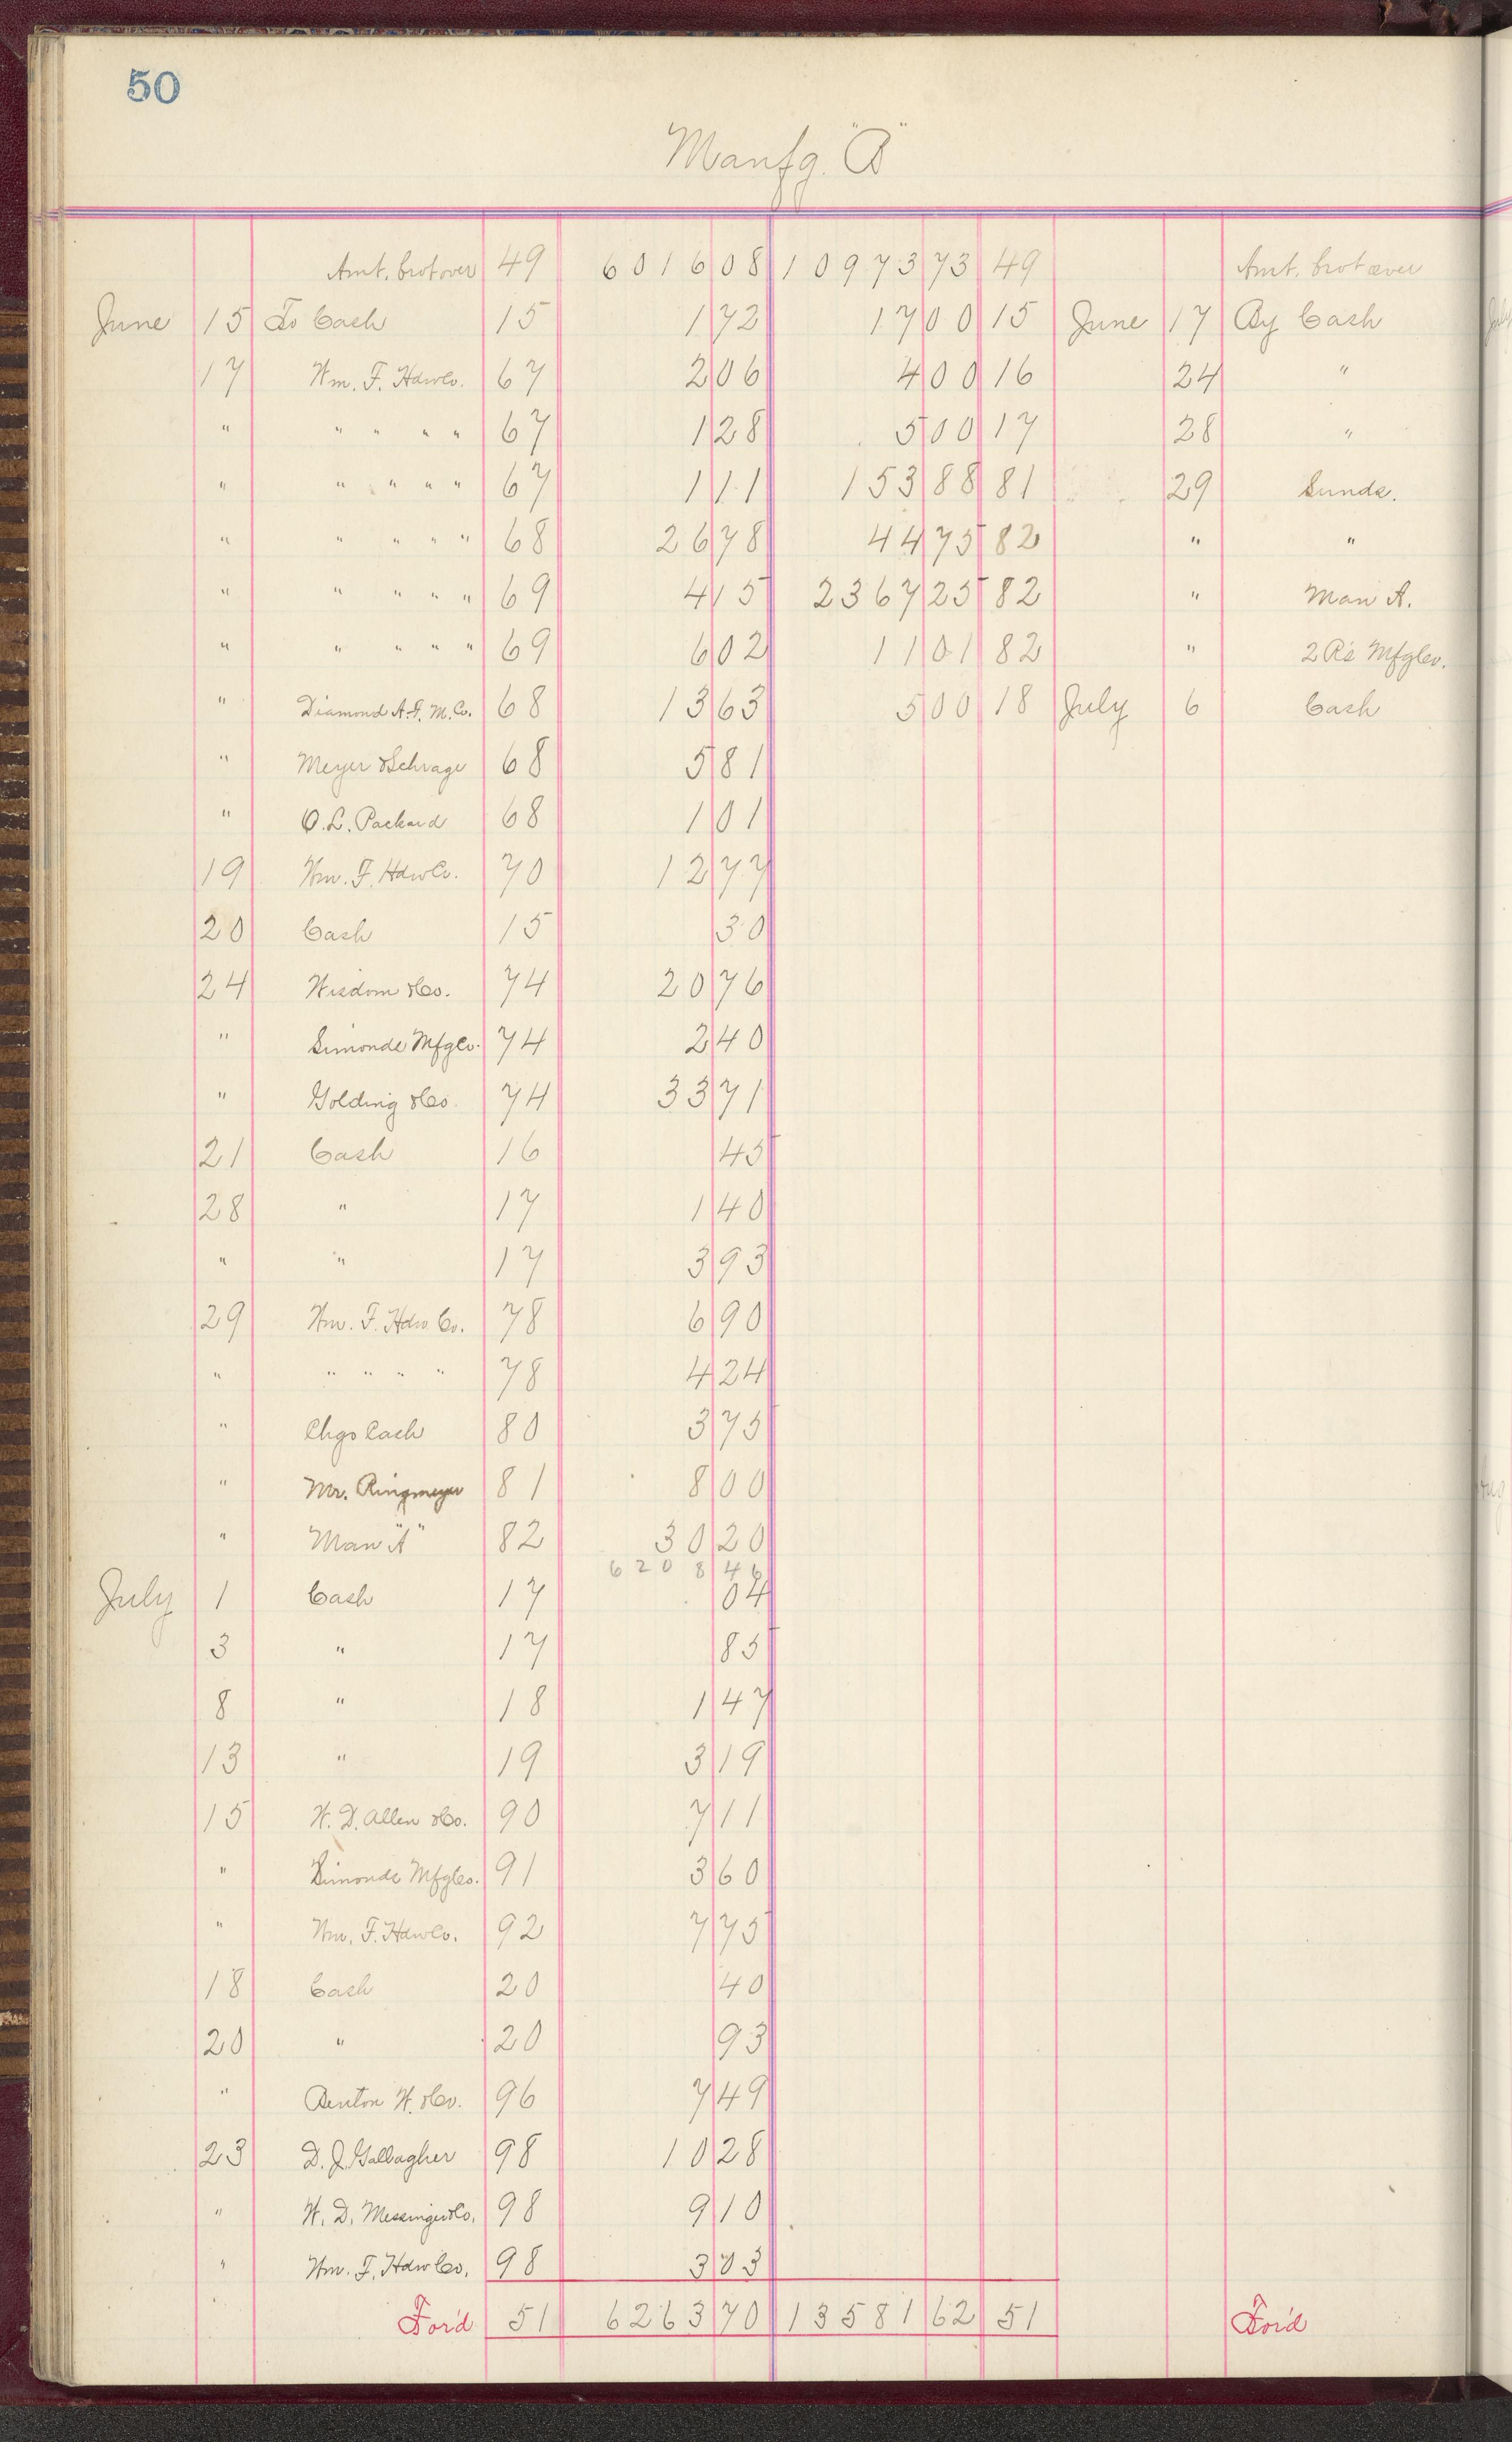 50
Manfg. "B"
Amt. brot over 49 6016 08 10973 73 49 Amt. brot over
June 15 To Cash 15 1 72 17 00 15 June 17 By Cash
17 Wm. F. Hdw Co. 67 2 06 4 00 16 24 "
" " " " " 67 1 28 5 00 17 28 "
" " " " " 67 1 11 153 88 81 29 Sunds.
" " " " " 68 26 78 44 75 82 " "
" " " " " 69 4 15 2367 25 82 " Man A.
" " " " " 69 6 02 11 01 82 " 2 Rs Mfg Co.
" Diamond A.F. M. Co. 68 13 63 5 00 18 July 6 Cash
" Meyer & Schrage 68 5 81
" O. L. Packard 68 1 01
19 Wm. F. Hdw Co. 70 12 77
20 Cash 15 30
24 Wisdom & Co. 74 20 76
" Simonds Mfg Co. 74 2 40
" Golding & Co. 74 33 71
21 Cash 16 45
28 " 17 1 40
" " 17 3 93
29 Wm. F. Hdw. Co. 78 6 90
" " " " " 78 4 24
" Chgo Cash 80 3 75
" Mr. Ringmeyer 81 8 00
" Man "A" 82 30 20
6208 46
July 1 Cash 17 04
3 " 17 85
8 " 18 1 47
13 " 19 3 19
15 W. D. Allen & Co. 90 7 11
" Simonds Mfg Co. 91 3 60
" Wm. F. Hdw Co. 92 7 75
18 Cash 20 40
20 " 20 93
" Benton W. & Co. 96 7 49
23 D. J. Gallagher 98 10 28
" W. D. Messinger & Co. 98 9 10
" Wm. F. Hdw Co. 98 3 03
For'd 51 6263 70 13581 62 51 For'd